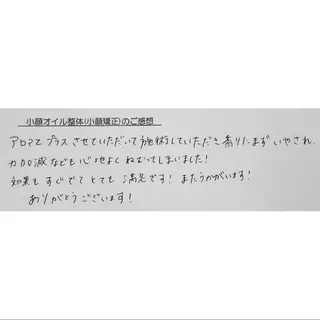 小顔オイル整体(小顔矯正)のご感想
アロマもプラスさせていただいて施術していただき香りにまずいやされ、
力加減なども心地よくねむってしまいました!
効果もすぐでてとても満足です!またうかがいます!
ありがとうございます!